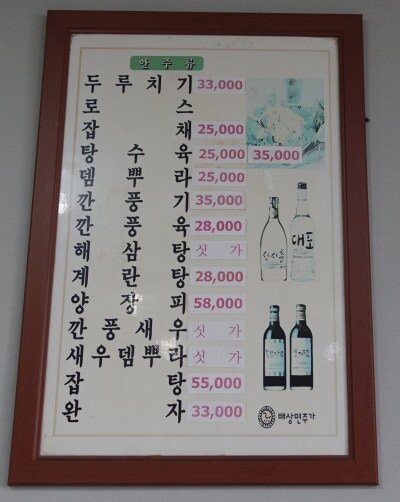 안 주 류
두 루 치 기 33,000
로 스
잡 채 25,000
탕 수 육 25,000 35,000
뎀 뿌 라 25,000
깐 풍 기 35,000
깐 풍 육 28,000
해 삼 탕 싯 가
계 란 탕 28,000
양 장 피 58,000
깐 풍 새 우 싯 가
새 우 뎀 뿌 라 싯 가
잡 탕 55,000
완 자 33,000
산사춘
대포
배상면주가